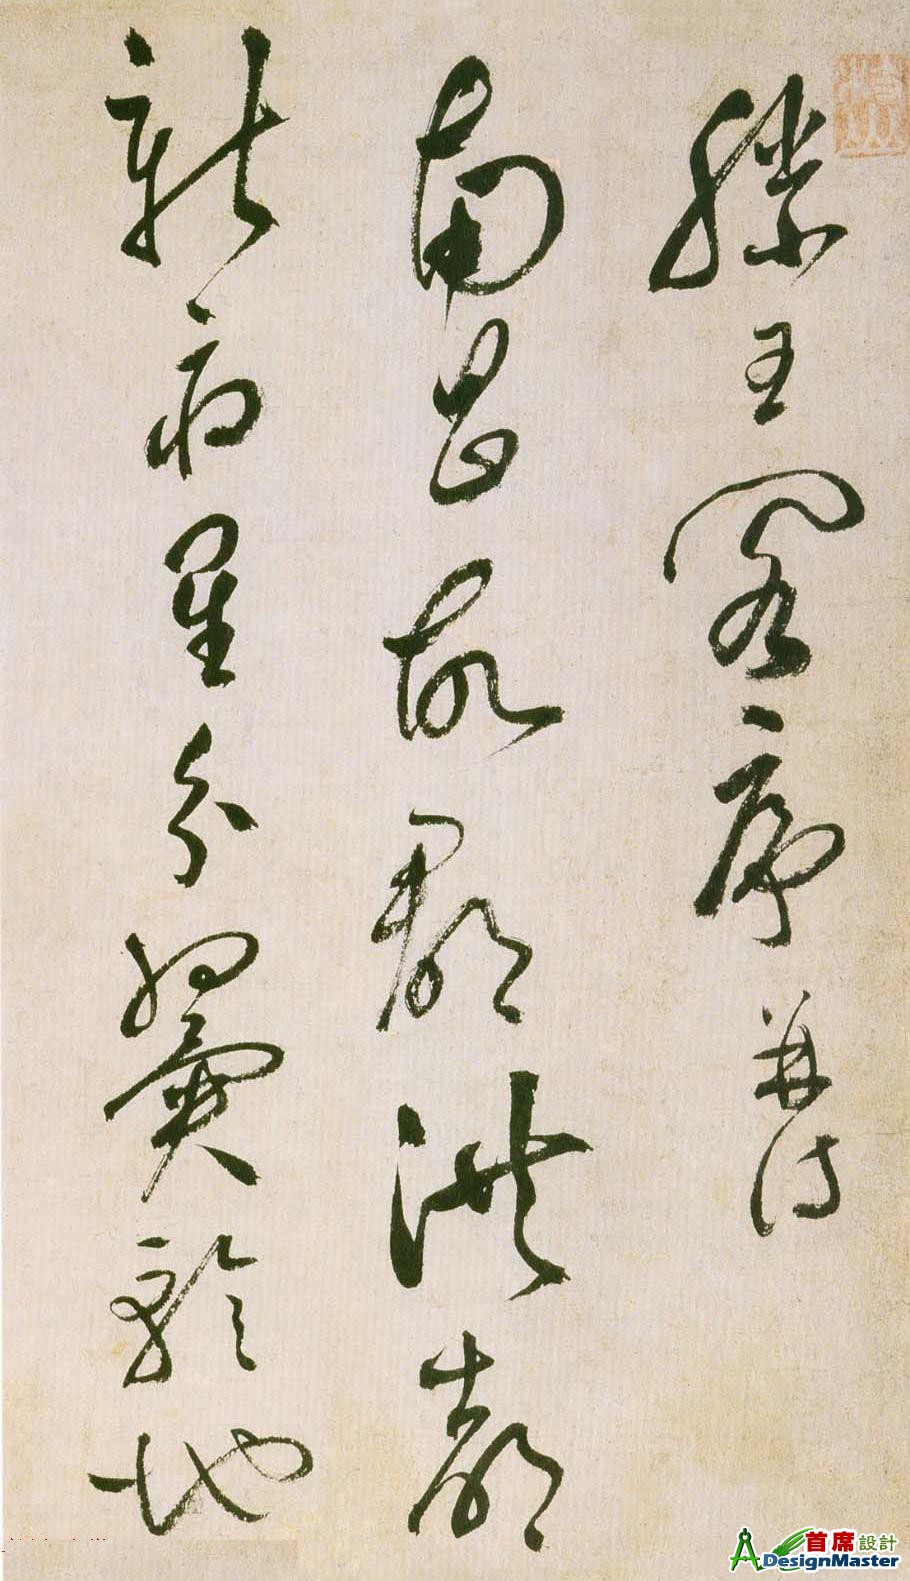 滕王閣序并詩
南昌故郡洪都
新府星分翼軫地
首席設計
DesignMaster